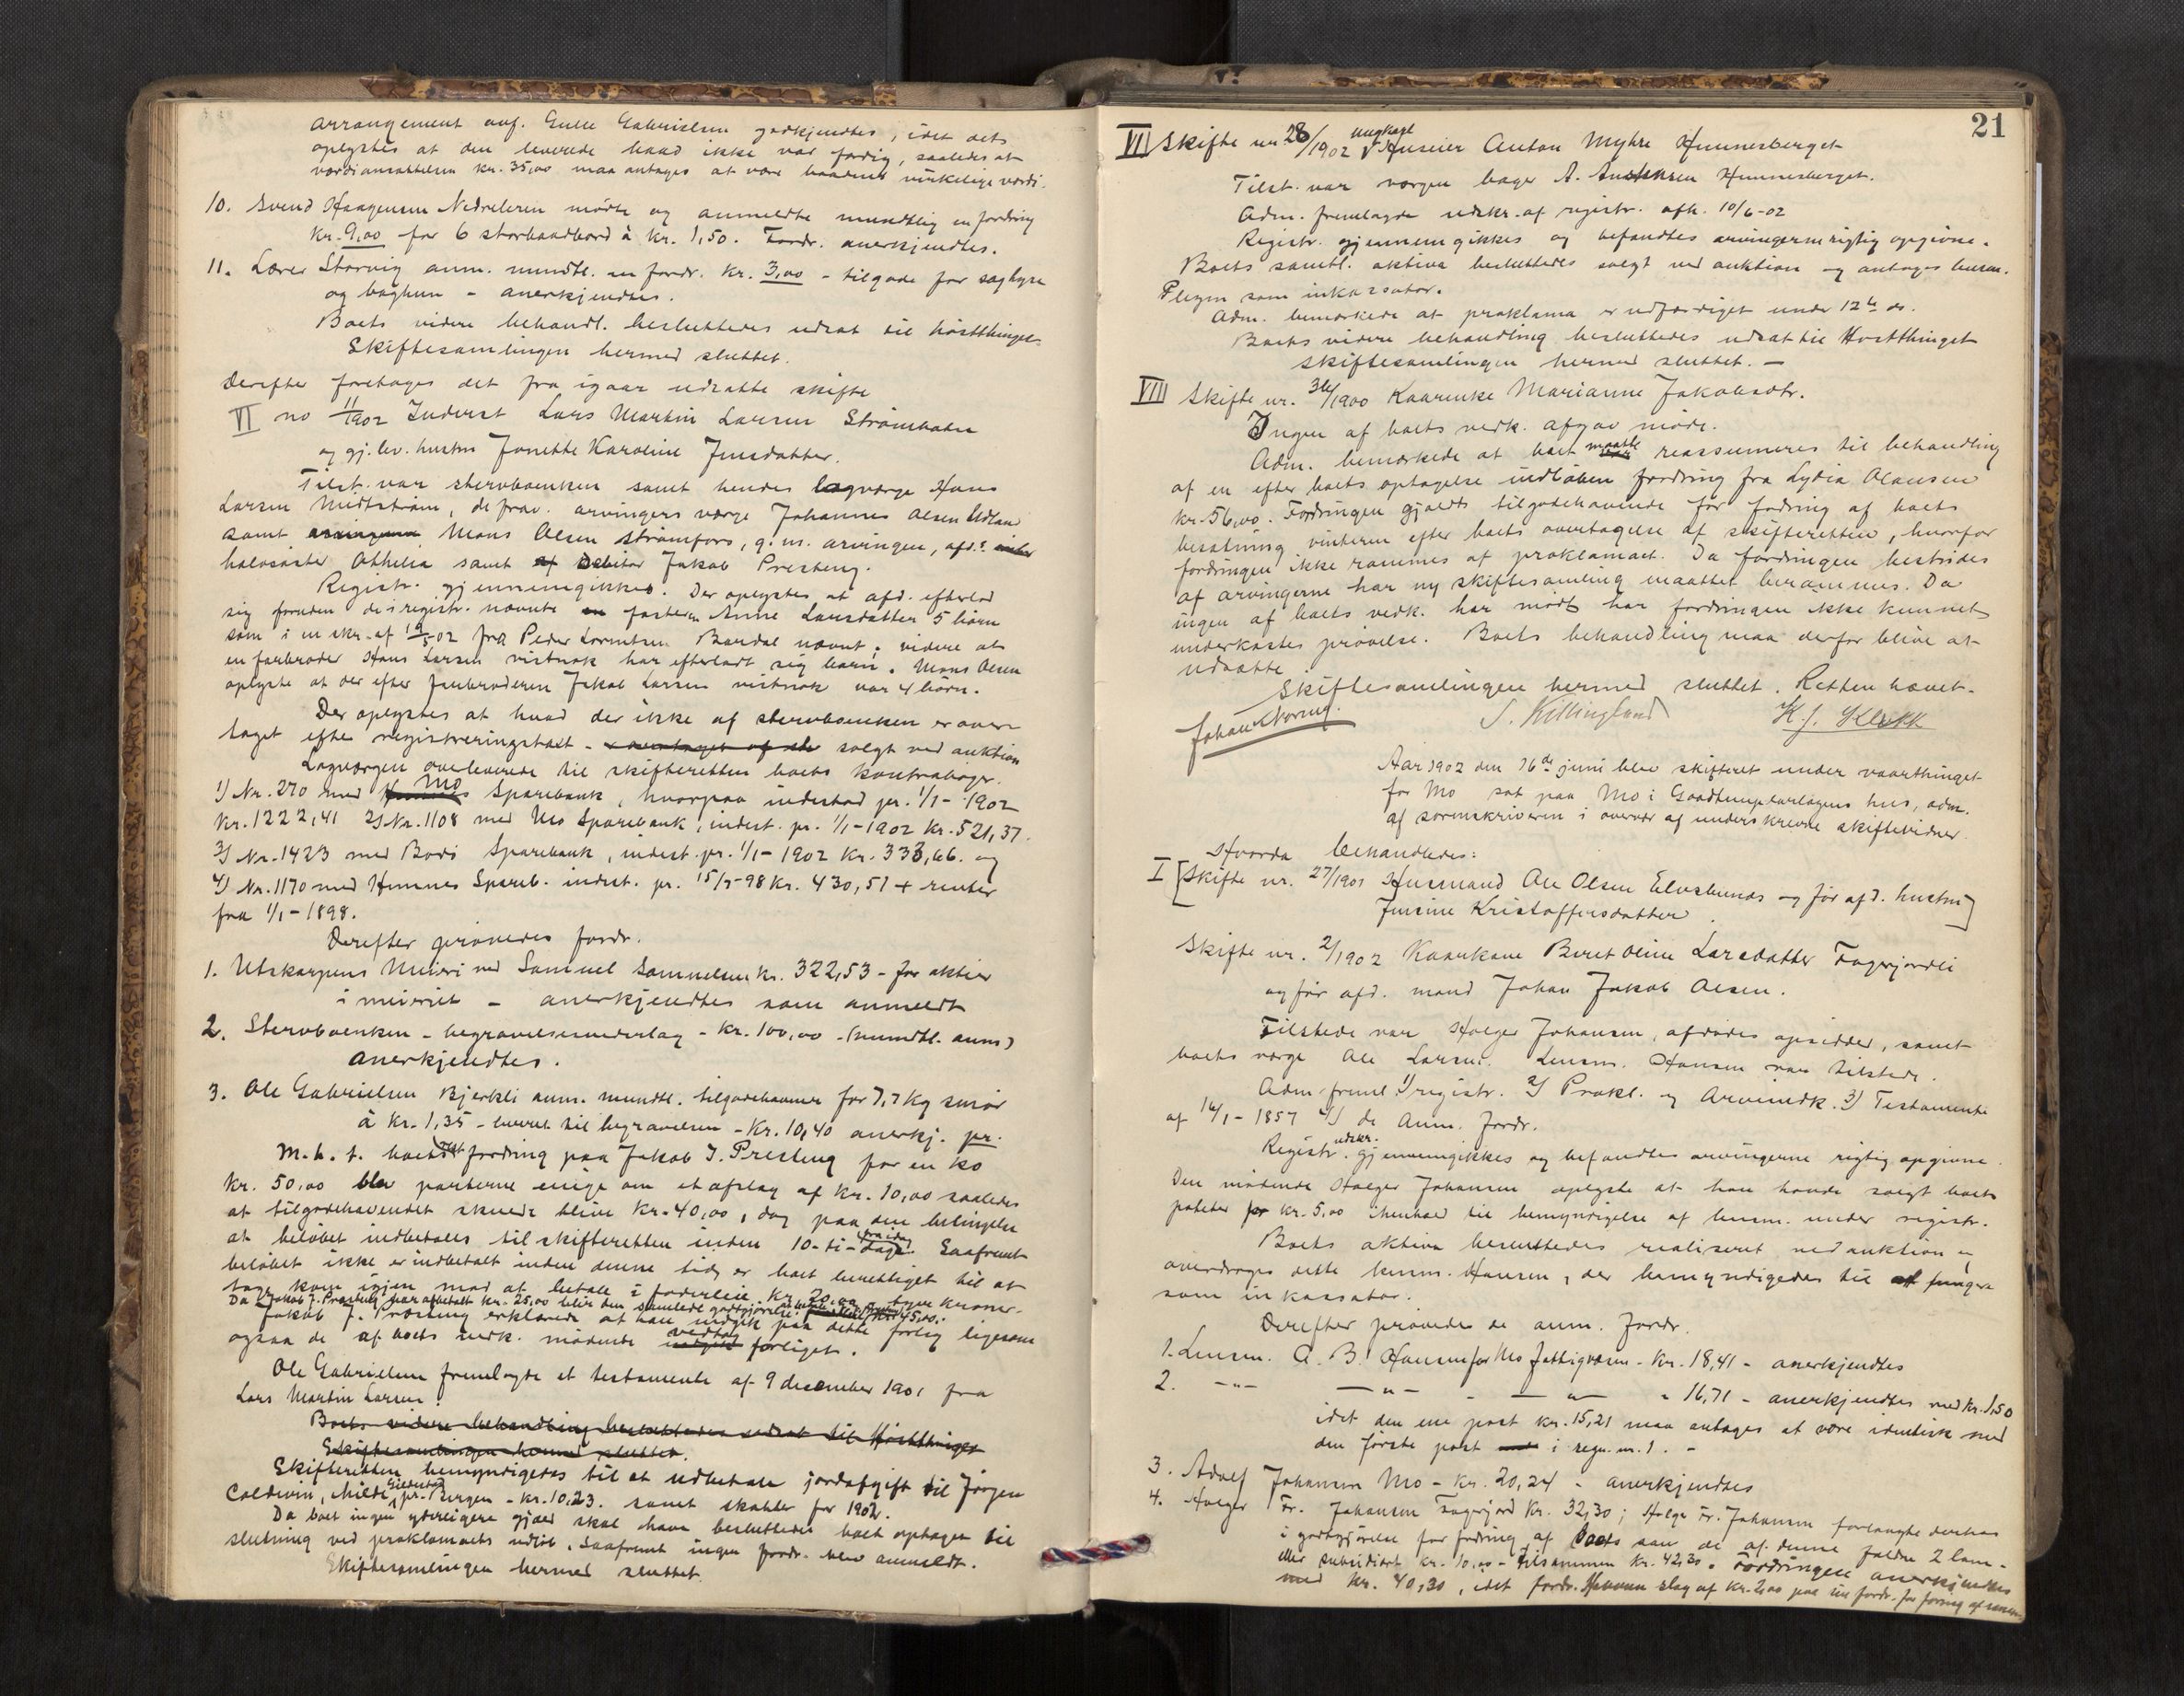 arrangement ang. Gulle Gabrielsen godkjendtes, idet det
oplystes at den leverede baad ikke var færdig, saaledes at
værdiansættelsen kr. 35,00 maa antages at være baadens virkelige værdi.
10. Svend Haagensen Nedreleren mødte og anmeldte mundtlig en fordring
kr. 9,00 for 6 storbaadbord à kr. 1,50. Fordr. anerkjendtes.
11. Lærer Storvig anm. mundtl. en fordr. kr. 3,00 - tilgode for saghyre
og baghun - anerkjendtes.
Boets videre behandl. besluttedes udsat til høstthinget.
Skiftesamlingen hermed sluttet.
Derefter foretoges det fra igaar udsatte skifte
VI no 11/1902 Inderst Lars Martin Larsen Strømbotn
og gj. lev. hustru Jonette Karoline Jensdatter.
Tilst. var stervboenken samt hendes lagværge Hans
Larsen Midtstrøm, de frav. arvingers værge Johannes Olsen Utland
samt Mons Olsen Strømfors, g. m. arvingen, afd.s
halvsøster Othelia samt Debitor Jakob Presteng.
Registr. gjennemgikkes. Der oplystes at afd. efterlod
sig foruden de i registr. nævnte fasteren Anne Larsdatter 5 børn
som i en skr. af 19/5-02 fra Peder Lorentsen Bardal nævnt; videre at
en farbroder Hans Larsen vistnok har efterladt sig barn. Mons Olsen
oplyste at der efter farbroderen Jakob Larsen vistnok var 4 børn.
Der oplystes at hvad der ikke af stervboenken er over-
taget efter registreringstaxt - solgt ved auktion
Lagværgen overleverede til skifteretten boets kontrabøger.
1) Nr. 270 med Mo Sparebank, hvorpaa indestod pr. 1/1-1902
kr. 1222,41 2) Nr. 1108 med Mo Sparebank, indest. pr. 1/1-1902 kr. 521,37.
3) Nr. 1423 med Bodø Sparebank, indest. pr. 1/1-1902 kr. 333,66. og
4) Nr. 1170 med Hemnes Spareb. indest. pr. 15/7-98 kr. 430,51 + renter
fra 1/1-1898.
Derefter prøvedes fordr.
1. Utskarpens Meieri ved Samuel Samuelsen kr. 322,53 - for aktier
i meieriet - anerkjendtes som anmeldt
2. Stervboenken - begravelsesvederlag - kr. 100,00 - (mundtl. anm)
anerkjendtes.
3. Ole Gabrielsen Bjerkli anm. mundtl. tilgodehavende for 7,7 kg smør
à kr. 1,35 - leveret til begravelsen - kr. 10,40 anerkj. pr.
M.h.t. boets fordring paa Jakob J. Presteng for en ko
kr. 50,00 blev parterne enige om et afslag af kr. 10,00 saaledes
at tilgodehavendet skulde blive kr. 40,00, dog paa den betingelse
at beløbet indbetales til skifteretten inden 10-ti-dage fra idag. Saafremt
beløbet ikke er indbetalt inden denne tid, er boet berettiget til at
tage koen igjen mod at betale i foderleie kr. 20,00 - tyve kroner.
Da Jakob J. Presteng har afbetalt kr. 25,00 blir den samlede godtgjørelse kr. 45,00.
Jakob J. Presteng erklærede at han indgik paa dette forlig ligesom
ogsaa de af boets vedk. mødende vedtog forliget.
Ole Gabrielsen fremlagde et testamente af 9 december 1901 fra
Lars Martin Larsen.
Boets videre behandling besluttedes udsat til Høstthinget
Skiftesamlingen hermed sluttet.
Skifteretten bemyndigedes til at udbetale jordafgift til Jørgen
Coldevin, Milde pr. Bergen - kr. 10,23. samt skatter for 1902.
Da boet ingen yderligere gjæld skal have besluttedes boet optaget til
slutning ved proklamaets udløb, saafremt ingen fordr. blev anmeldt.
Skiftesamlingen hermed sluttet.
21
VII Skifte nr. 28/1902 ungkarl Huseier Anton Myhre Hemnesberget
Tilst. var værgen bager A. Andersen Hemnesberget.
Adm. fremlagde udskr. af registr. afh. 10/6-02
Registr. gjennemgikkes og befandtes arvingerne rigtig opgivne.
Boets samtl. aktiva besluttedes solgt ved auktion og antoges lensm.
Plejm som inkassator.
Adm. bemærkede at proklama er udfærdiget under 12te ds.
Boets videre behandling besluttedes udsat til Høstthinget
Skiftesamlingen hermed sluttet. -
VIII Skifte nr. 36/1900 Kaarenke Marianne Jakobsdtr.
Ingen af boets vedk. afgav møde.
Adm. bemærkede at boet maatte reassumeres til behandling
af en efter boets optagelse indløben fordring fra Lydia Olausen
kr. 56,00. Fordringen gjaldt tilgodehavende for fodring af boets
besætning vinteren efter boets overtagelse af skifteretten, hvorfor
fordringen ikke rammes af proklamaet. Da fordringen bestrides
af arvingerne har ny skiftesamling maattet berammes. Da
ingen af boets vedk. har mødt har fordringen ikke kunnet
underkastes prøvelse. Boets behandling maa derfor blive at
udsætte
Skiftesamlingen hermed sluttet. Retten hævet.
Johan Noring. S. Killingland K. J. Klækk
Aar 1902 den 16de juni blev skifteret under vaarthinget
for Mo sat paa Mo i Goodtemplarlogens hus, adm.
af sorenskriveren i overvær af underskrevne skiftevidner.
Hvorda behandledes:
I [Skifte nr. 27/1901 Husmand Ole Olsen Elvslunds og før afd. hustru]
Jensine Kristoffersdatter.
Skifte nr. 2/1902 Kaarkone Beret Oline Larsdatter Fagerjordli
og før afd. mand Johan Jakob Olsen.
Tilstede var Holger Johansen, afdødes opsidder, samt
boets værge Ole Larsen. Lensm. Hansen var tilstede.
Adm. freml. 1) registr. 2) Prokl. og Arveindk. 3) Testamente
af 16/1-1857 4) de anm. fordr.
Registr. udskr. gjennemgikkes og befandtes arvingerne rigtig opgivne.
Den mødende Holger Johansen oplyste at han havde solgt boets
poteter for kr. 5,00 i henhold til bemyndigelse af lensm. under registr.
Boets aktiva besluttedes realiseret ved auktion og
overdroges dette lensm. Hansen, der bemyndigedes til at fungere
som inkassator.
Derefter prøvedes de anm. fordr.
1. Lensm. A. B. Hansen for Mo fattigvæsen - kr. 18,41 - anerkjendtes
2. -"- -"- - -"- " 16,71 - anerkjendtes med kr. 1,50
idet den ene post kr. 15,21 maa antages at være identisk med
den første post i regn. nr. 1. -
3. Adolf Johansen Mo - kr. 20,24 - anerkjendtes
4. Holger Fr. Johansen Fagerjord kr. 32,30; Holger Fr. Johansen forlangte derhos
i godtgjørelse for fodring af boets sau de af denne faldne 2 lam.
eller subsidiært kr. 10,00 - tilsammen kr. 42,30. Fordringen anerkjendtes
med kr. 40,30, idet fordr. slog af kr. 2,00 paa sin fordr. for foring af sauen.